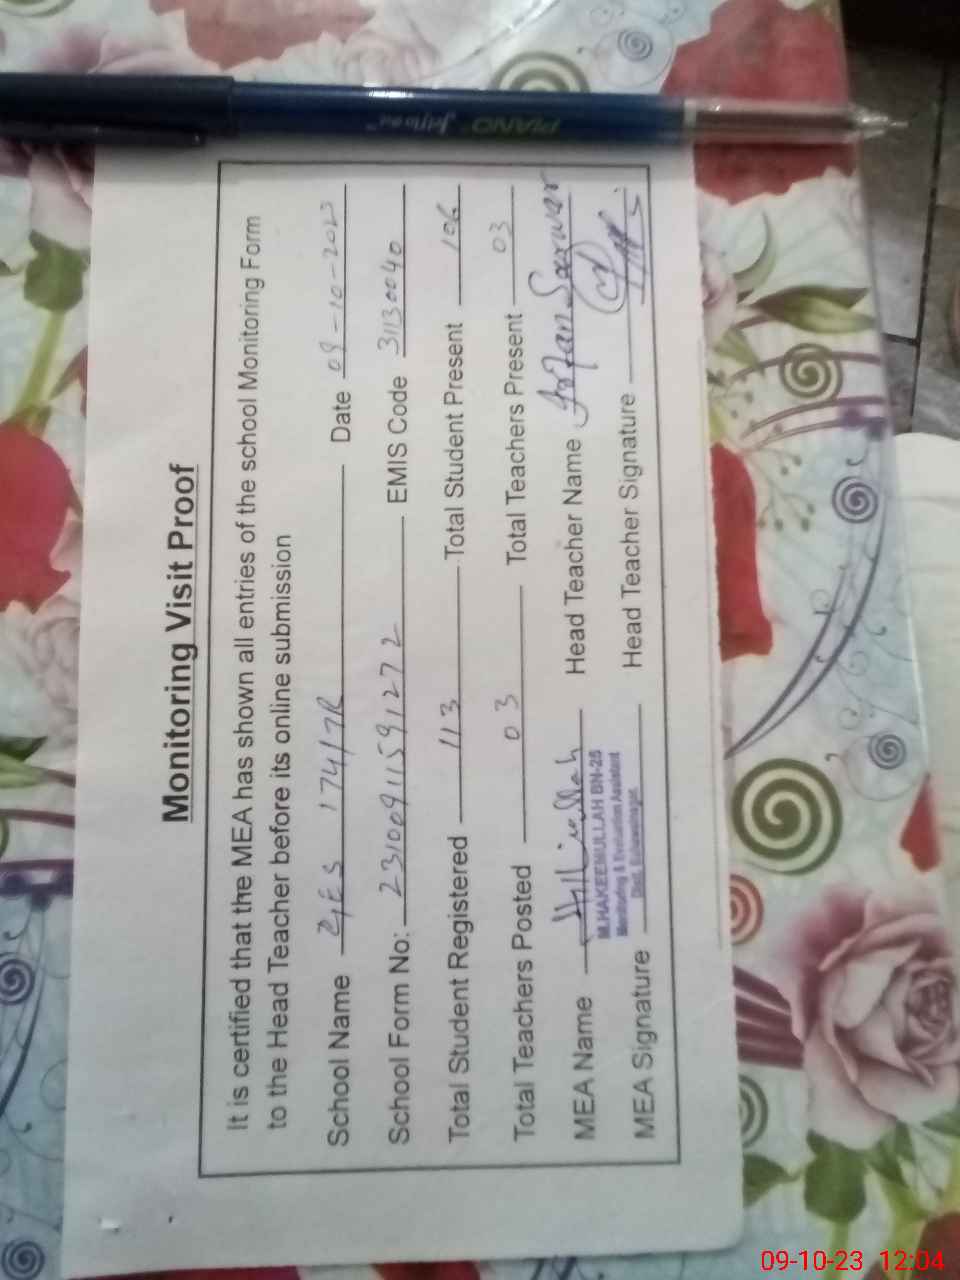 Monitoring Visit Proof
It is certified that the MEA has shown all entries of the school Monitoring Form
to the Head Teacher before its online submission
School Name GES 174/7R Date 09-10-2023
School Form No: 23100911591272 EMIS Code 31130040
Total Student Registered 113 Total Student Present 106
Total Teachers Posted 03 Total Teachers Present 03
MEA Name Head Teacher Name Irfan Sarwar
M.HAKEEMULLAH BN-25
Monitoring & Evaluation Assistant
Distt. Bahawalnagar
MEA Signature Head Teacher Signature
PIANO
09-10-23 12:04